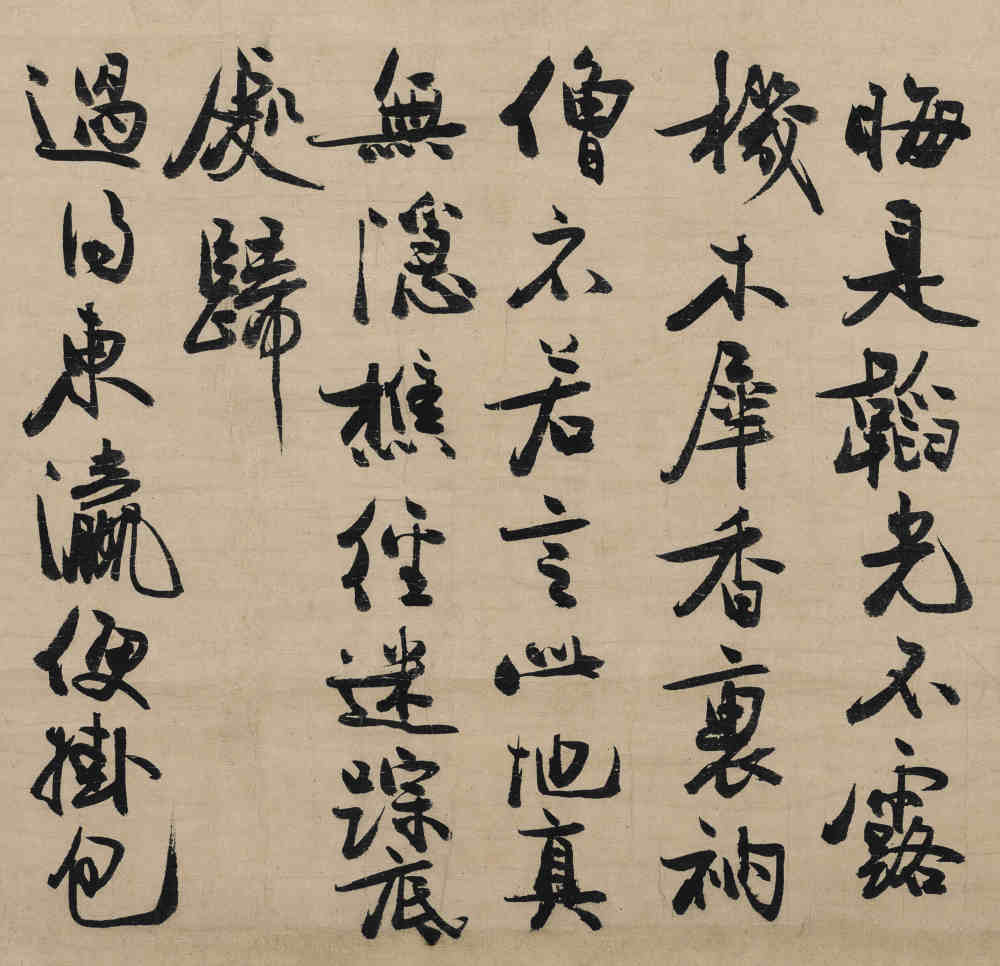 晦是韜光不露
機木犀香裏衲
僧衣若言此地真
無隱樵徑迷蹤底
處歸
過得東瀛便掛包